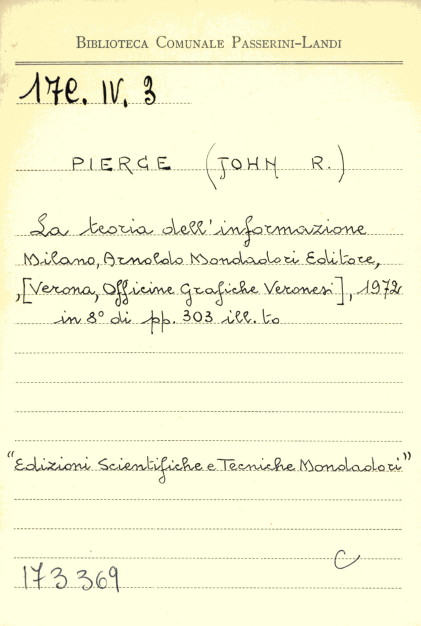 BIBLIOTECA COMUNALE PASSERINI-LANDI
17C. IV. 3
PIERCE (JOHN R.)
La teoria dell'informazione
Milano, Arnoldo Mondadori Editore,
,[Verona, Officine Grafiche Veronesi], 1972
in 8° di pp. 303 ill.to
"Edizioni Scientifiche e Tecniche Mondadori"
C
173369